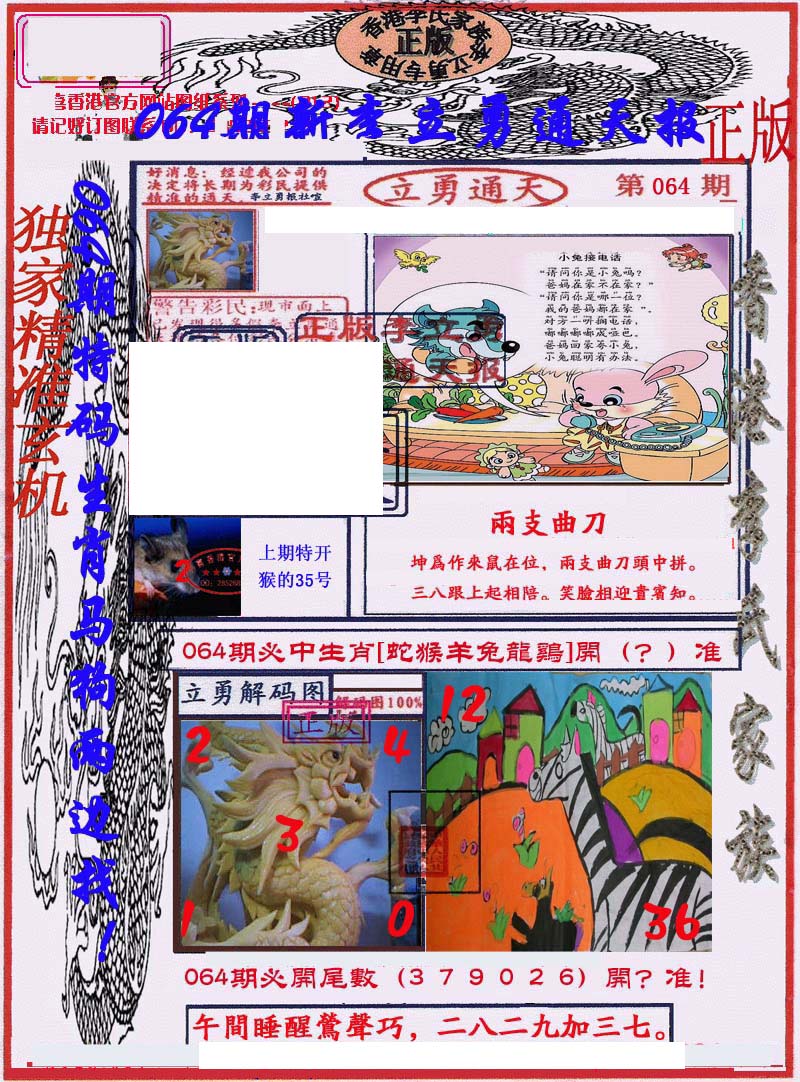 香港李氏家族
正版
李立勇专用章
请记好订图联系
064期新李立勇通天报
正版
好消息：经过我公司的
决定将长期为彩民提供
精准的通天。李立勇报社宣
立勇通天
第 064 期
警告彩民:现市面上
正版李立勇
通天报
小兔接电话
“请问你是小兔吗？
爸妈在家不在家？”
“请问你是哪一位？
我的爸妈都在家”。
对方一听掏电话，
嘟嘟嘟嘟成哑巴。
爸妈回家夸小兔，
小兔聪明有办法。
独家精准玄机
064期特码生肖马狗两边找！
香港李氏家族
2
上期特开
猴的35号
兩支曲刀
坤爲作來鼠在位，兩支曲刀頭中拼。
三八跟上起相陪。笑臉相迎貴賓知。
064期必中生肖[蛇猴羊兔龍鷄]開（？）准
立勇解码图
解码图100%
正版
2
4
3
1
0
12
36
064期必開尾數（379026）開？准！
午間睡醒鶯聲巧，二八二九加三七。